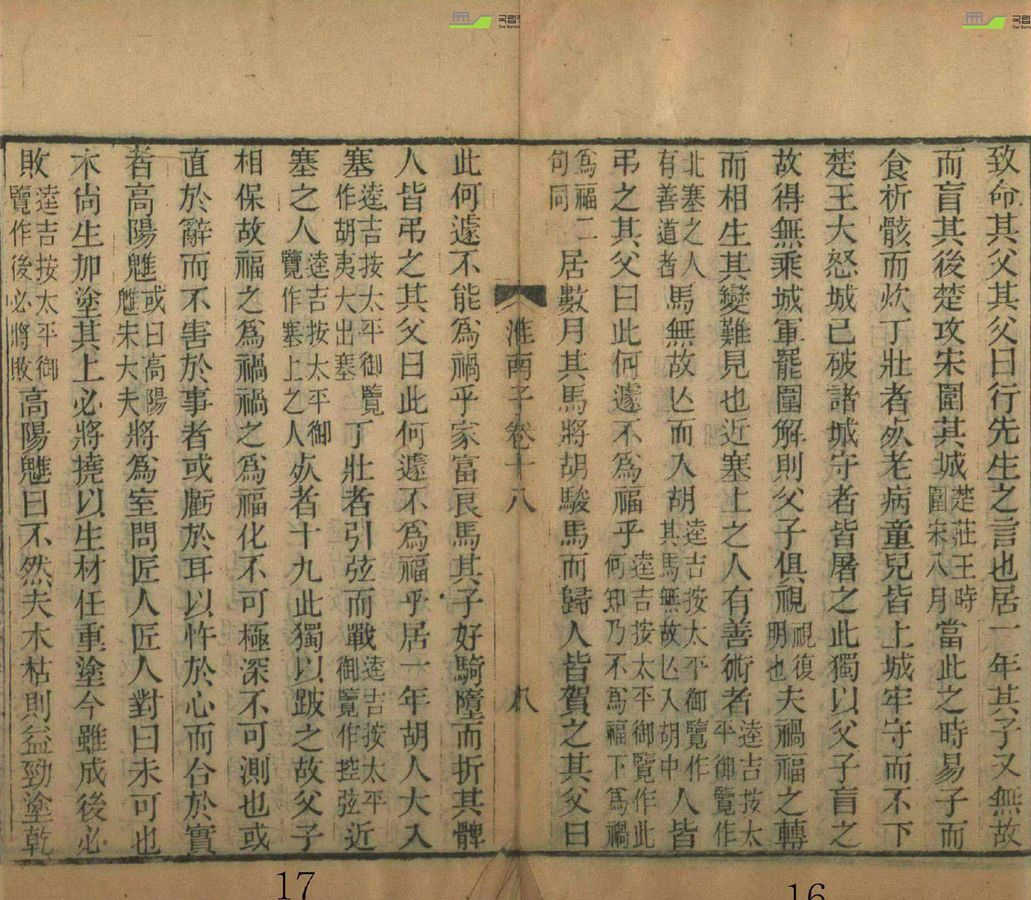 致命其父其父曰行先生之言也居一年其子又無故
而盲其後楚攻宋圍其城楚莊王時圍宋八月當此之時易子而
食析骸而炊丁壯者死老病童兒皆上城牢守而不下
楚王大怒城已破諸城守者皆屠之此獨以父子盲之
故得無乘城軍罷圍解則父子俱視視復明也夫禍福之轉
而相生其變難見也近塞上之人有善術者逵吉按太平御覽作
北塞之人有善道者馬無故亾而入胡逵吉按太平御覽作其馬無故亾入胡中人皆
弔之其父曰此何遽不爲福乎逵吉按太平御覽作此何知乃不爲福下爲禍
爲福二句同居數月其馬將胡駿馬而歸人皆賀之其父曰
淮南子卷十八
此何遽不能爲禍乎家富良馬其子好騎墮而折其髀
人皆弔之其父曰此何遽不爲福乎居一年胡人大入
塞逵吉按太平御覽作胡夷大出塞丁壯者引弦而戰逵吉按太平御覽作控弦近
塞之人逵吉按太平御覽作塞上之人死者十九此獨以跛之故父子
相保故福之爲禍禍之爲福化不可極深不可測也或
直於辭而不害於事者或虧於耳以忤於心而合於實
者高陽魋或曰高陽魋宋大夫將爲室問匠人匠人對曰未可也
木尚生加塗其上必將撓以生材任重塗今雖成後必
敗逵吉按太平御覽作後必將敗高陽魋曰不然夫木枯則益勁塗乾
17
16